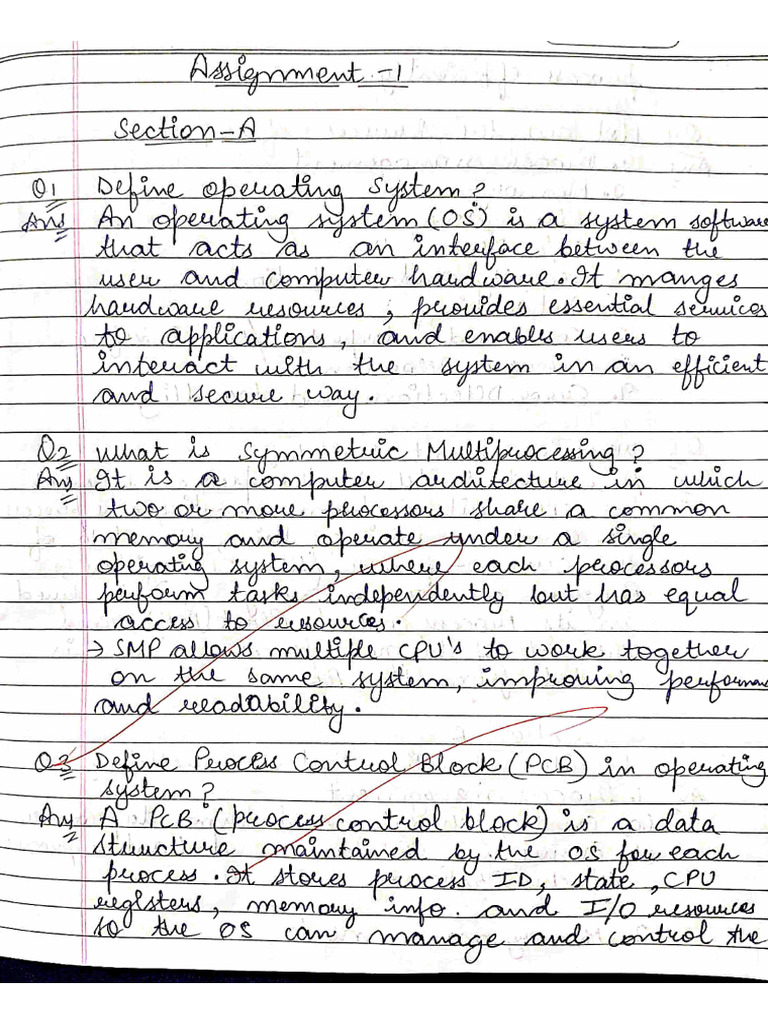 Assignment -1
Section-A
Q1 Define operating system?
Ans An operating system (OS) is a system software
that acts as an interface between the
user and computer hardware. It manges
hardware resources, provides essential services
to applications, and enables users to
interact with the system in an efficient
and secure way.
Q2 What is Symmetric Multiprocessing?
Ans It is a computer architecture in which
two or more processors share a common
memory and operate under a single
operating system, where each processors
perform tasks independently but has equal
access to resources.
→ SMP allows multiple CPU's to work together
on the same system, improving performan
and readability.
Q3 Define Process Control Block (PCB) in operating
system?
Ans A PCB (process control block) is a data
structure maintained by the OS for each
process. It stores process ID, state, CPU
registers, memory info. and I/O resources
so the OS can manage and control the